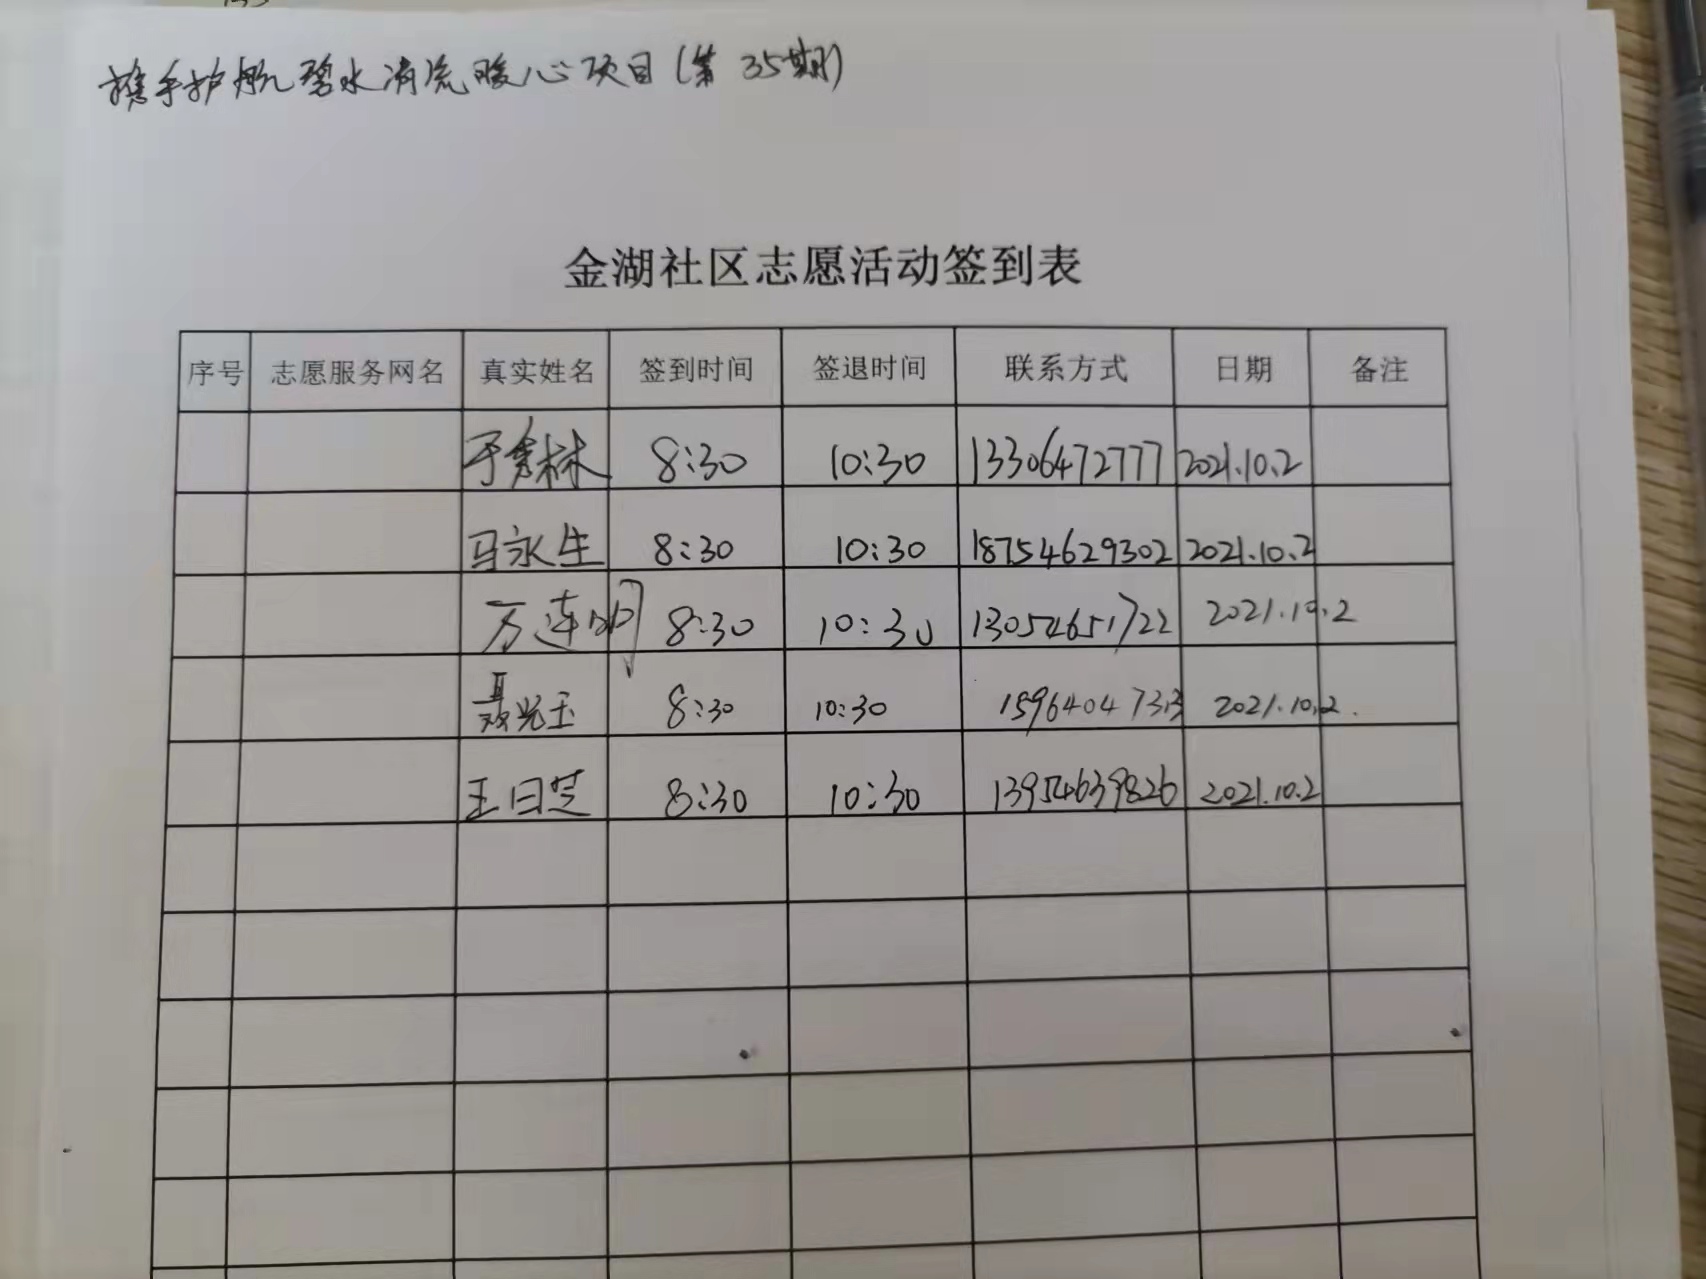 携手护航碧水清流暖心项目(第35期)
金湖社区志愿活动签到表
序号 志愿服务网名 真实姓名 签到时间 签退时间 联系方式 日期 备注
于秀林 8:30 10:30 13306472777 2021.10.2
马永生 8:30 10:30 18754629302 2021.10.2
万连明 8:30 10:30 13054651722 2021.10.2
聂光玉 8:30 10:30 2021.10.2.
王曰芝 8:30 10:30 13954639826 2021.10.2